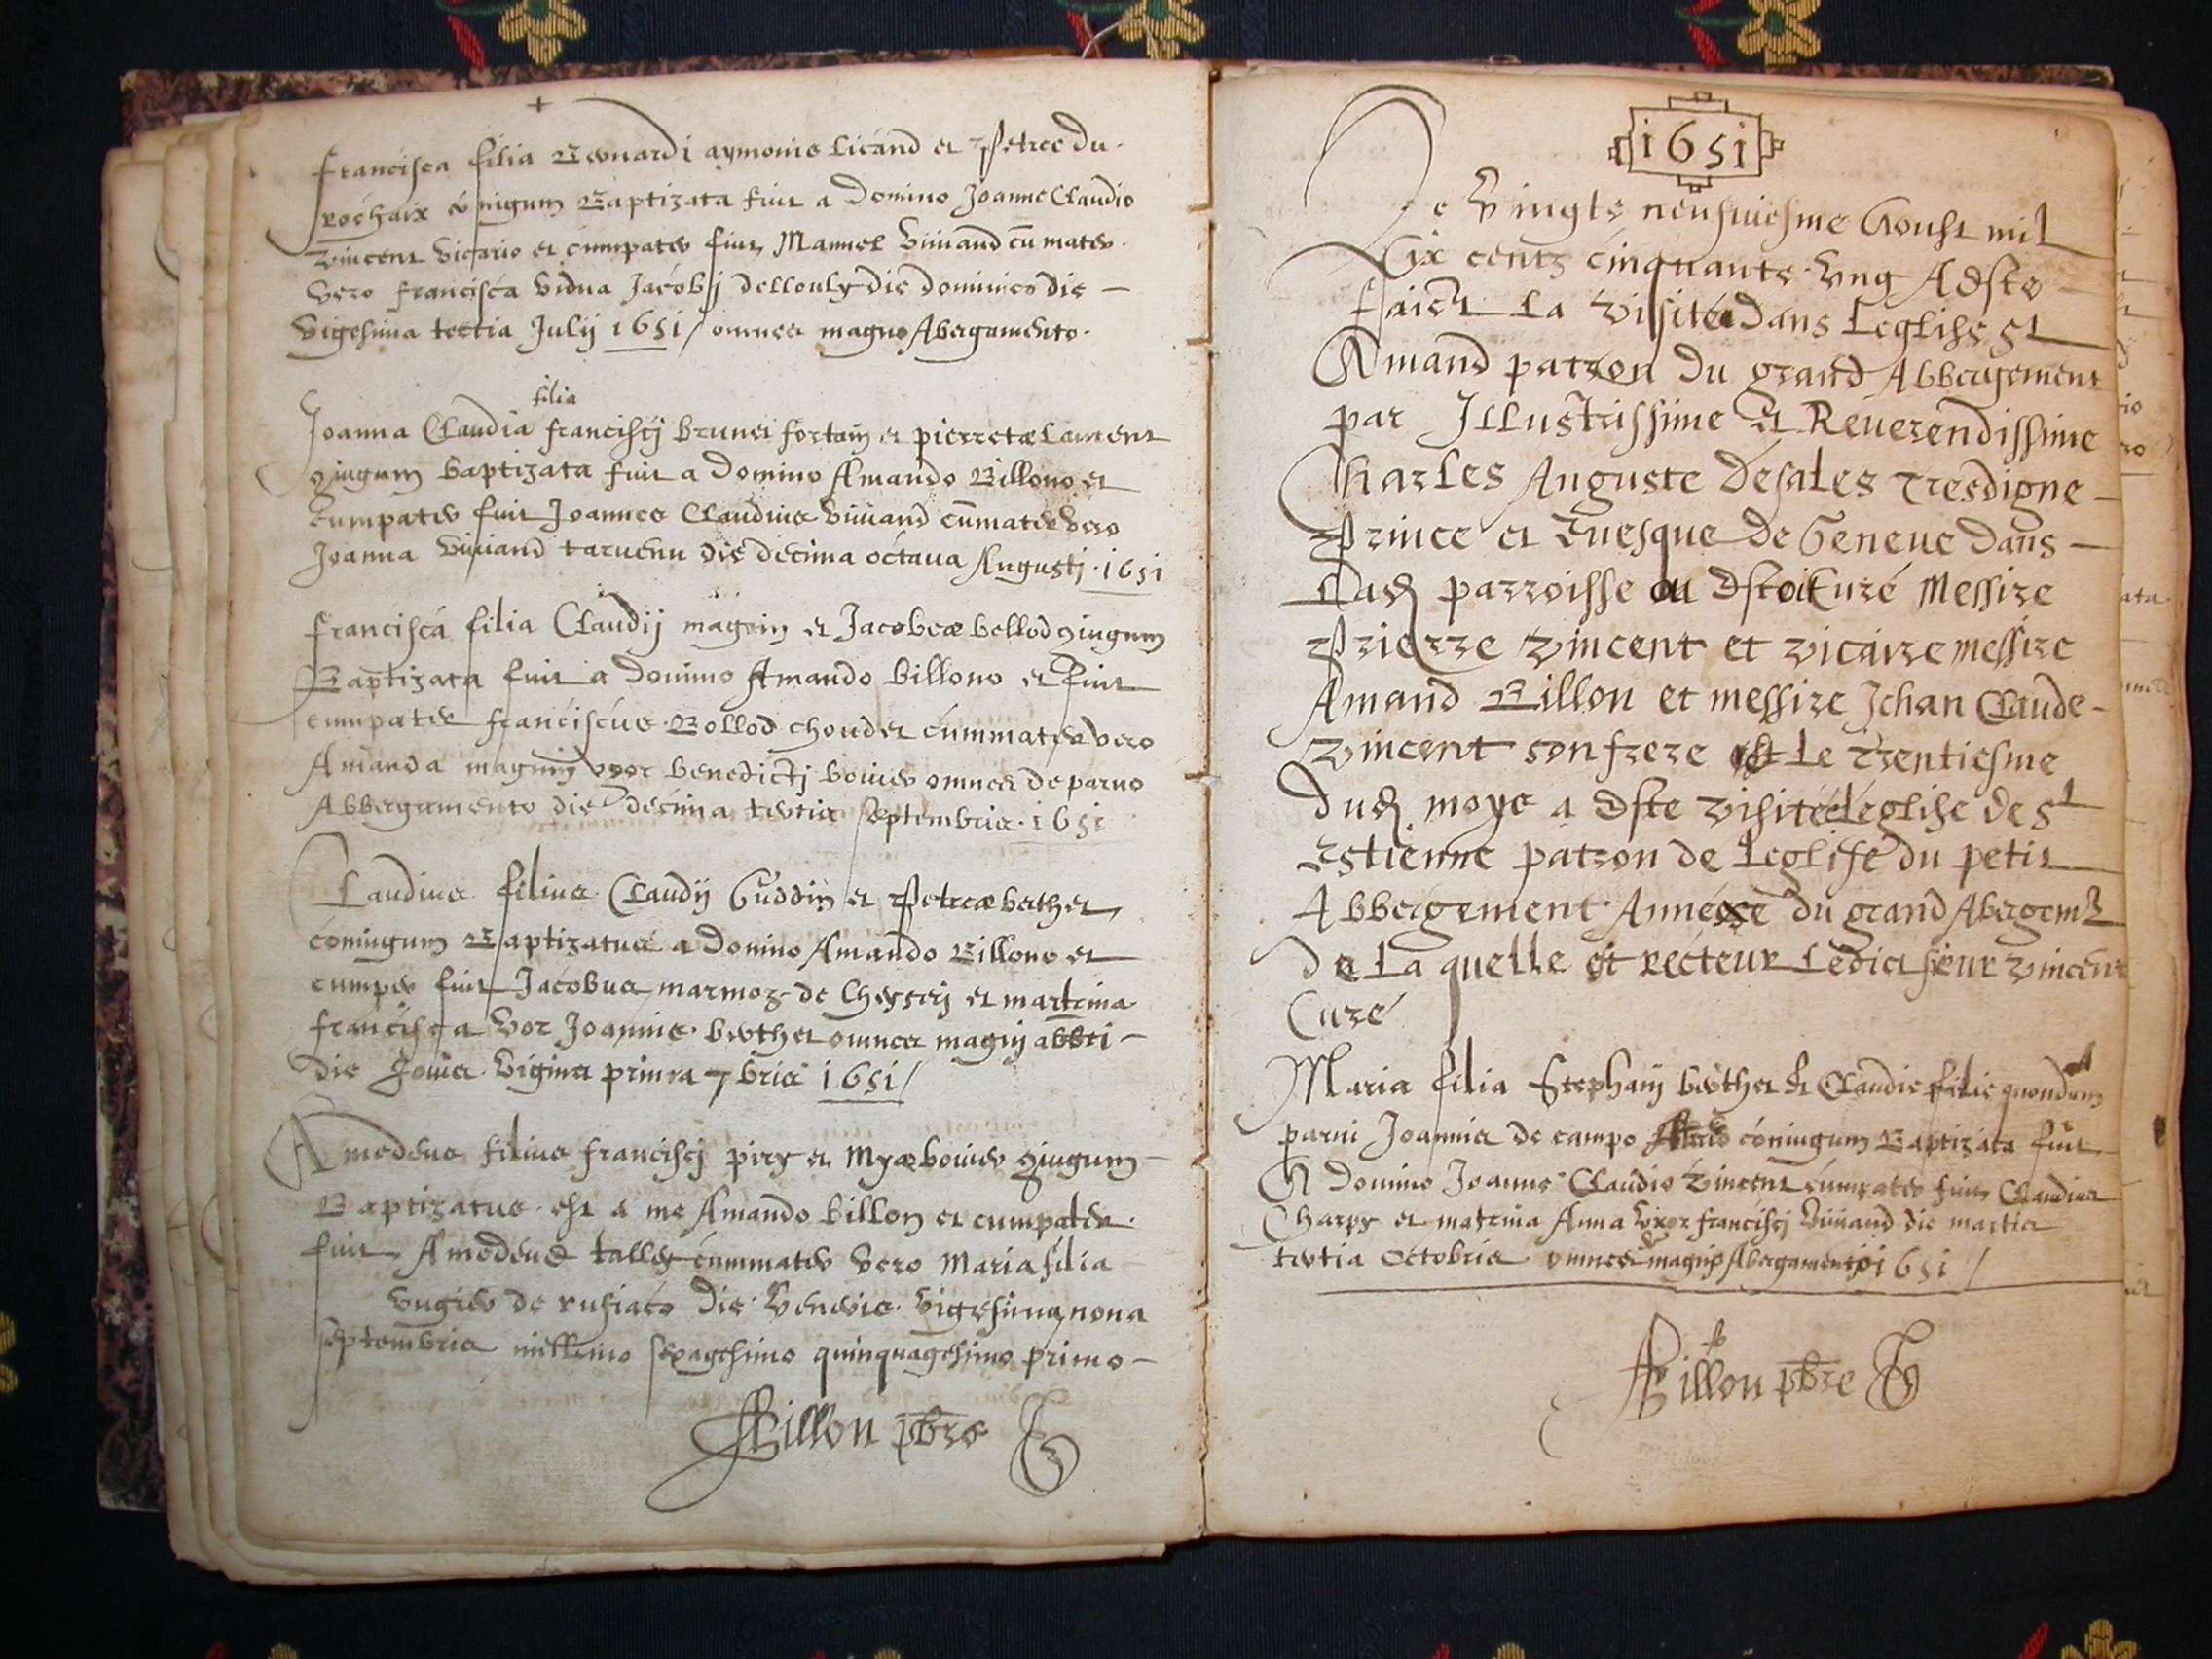 Francisca filia Bernardi aymonis Licand et Petree du
rochaix conigum Baptizata fuit a Domino Joanne Claudio
Vincent Vicario et cumpater fuit Manuel Viuand cum mater
vero francisca vidua Jacobj dellouly die dominico die
vigesima tertia Julij 1651 / omnes magno Abergamento
filia
Joanna Claudia franciscj brunet et pierretæ Lament
giugum baptizata fuit a Domino Amando Billono et
cumpater fuit Joannes Claudius Viuand cummater vero
Joanna Viuand die decima octaua Augustj 1651
francisca filia Claudij magnin et Jacobeæ bellod giugum
Baptizata fuit a Domino Amando billono et fuit
cumpater franciscus Bollod choudet cummater vero
Amanda magnin vxor benedictj bouier omnes de paruo
Abbergamento die decima tertia septembris 1651
Claudius filius Claudij Guddin et Petreæ berthet
coniugum Baptizatus a Domino Amando Billono et
cumper fuit Jacobus marmoz de Chezerj et martrina
francisca vxor Joannis berthet omnes magnj
die Jouis prima 7bris 1651 /
Amedeus filius francisci et Myæ bouier giugum
Baptizatus est a me Amando billon et cumpater
fuit Amedeus talley cummater vero Maria filia
de rufiaco die Veneris vigesima nona
septembris millimo sexagesimo quinquagesimo primo
ABillon pbre
1651
Le vingte neufuiesme Aoust mil
six centz cinquante vng A Este
faict La visitée dans Leglise St
Amand patron du grand Abbergement
par Illustrissime et Reuerendissime
Charles Auguste Desales tresdigne
Prince et Euesque de Geneue dans
Lad parroisse ou Estoit Curé Messire
Pierre Vincent et vicaire messire
Amand Billon et messire Jehan Claude
Vincent son frere et Le Trentiesme
dud moys a Este visitée leglise de St
Estienne patron de Leglise du petit
Abbergement Annexe du grand Abergemt
de La quelle et recteur Ledict sieur Vincent
Curé
Maria filia Stephanj berthet et Claudie filie quondam
parui Joannis de campo coniugum Baptizata fuit
A Domino Joanne Claudio Vincent cumpater fuit Claudius
Charpy et matrina Anna vxor francisci Viuand die martis
tertia Octobris omnes magnj Abergamento 1651 /
ABillon pbre